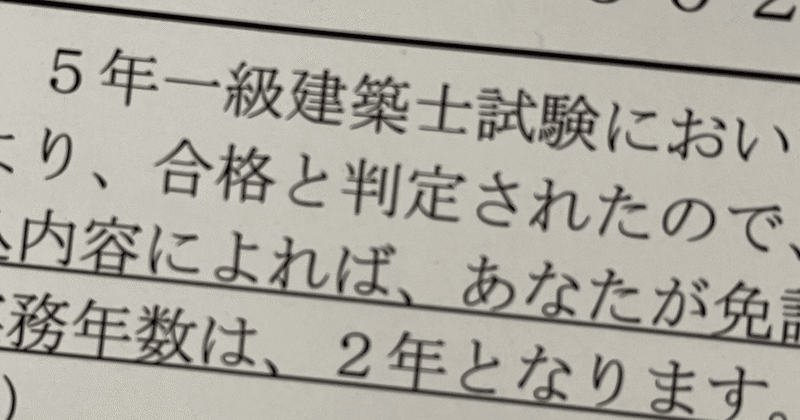 ５年一級建築士試験におい
より、合格と判定されたので、
内容によれば、あなたが免許
務年数は、２年となります。
）